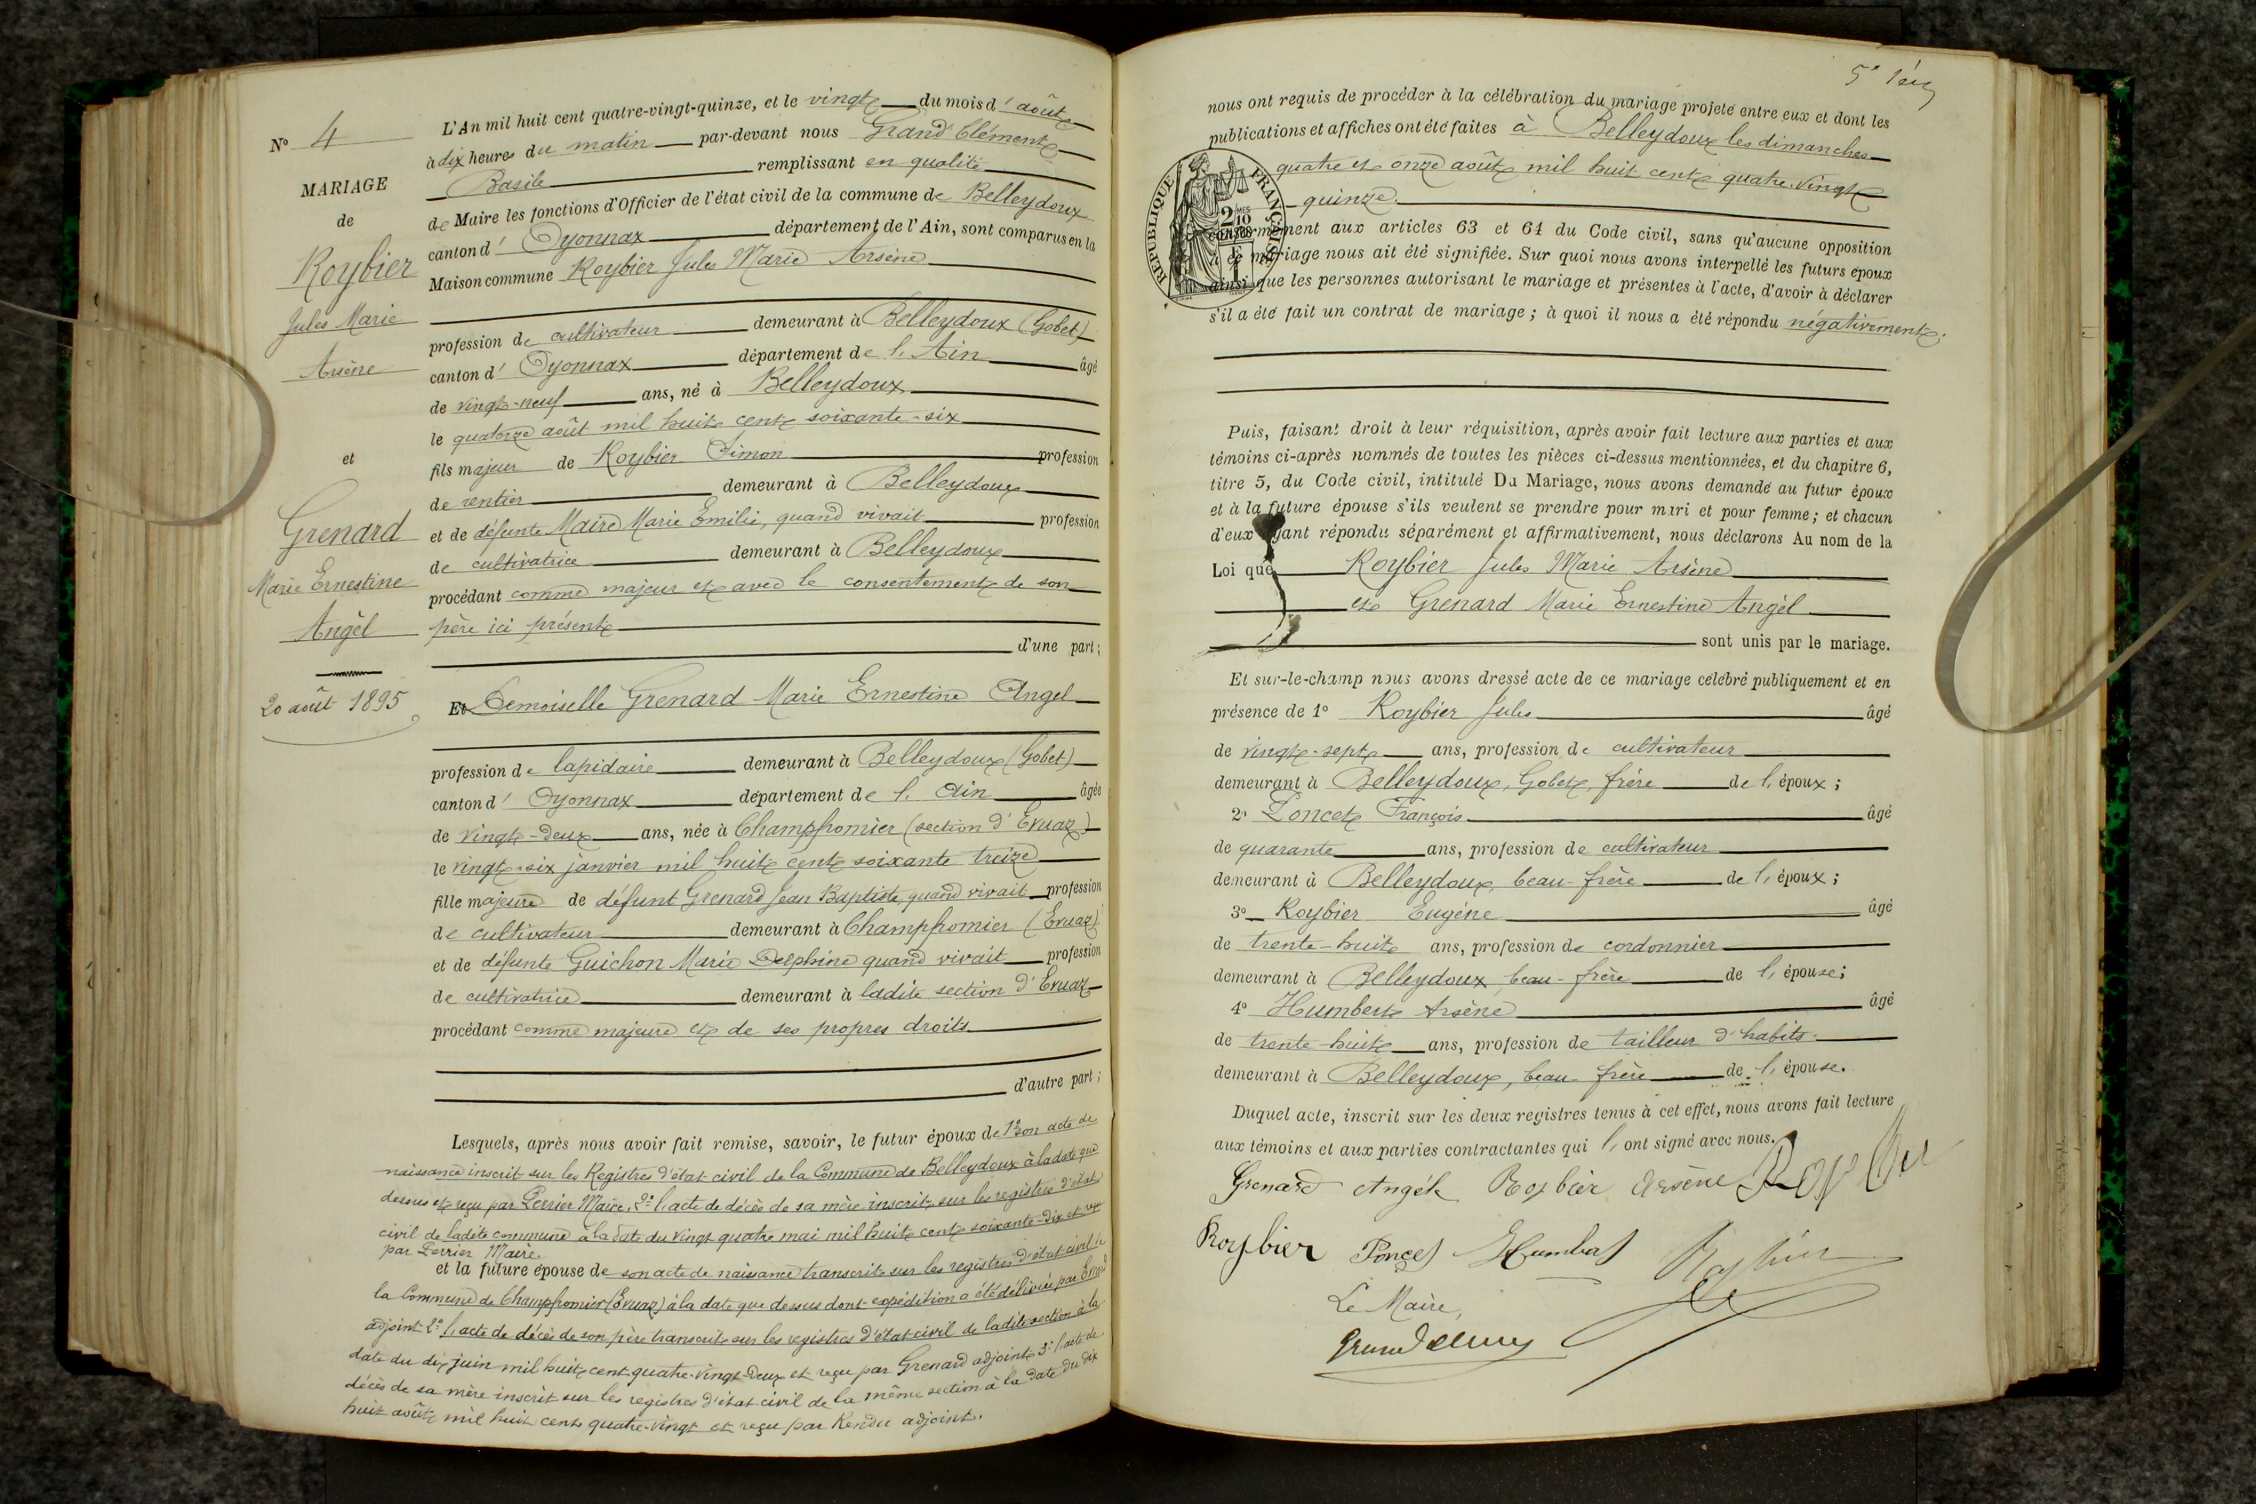 N° 4
MARIAGE
de
Roybier
Jules Marie
Arsène
et
Grenard
Marie Ernestine
Angèl
20 août 1895
L'An mil huit cent quatre-vingt-quinze, et le vingt du mois d'août
à dix heures du matin par-devant nous Grand Clément
Basile remplissant en qualité
de Maire les fonctions d'Officier de l'état civil de la commune de Belleydoux
canton d'Oyonnax département de l'Ain, sont comparus en la
Maison commune Roybier Jules Marie Arsène
profession de cultivateur demeurant à Belleydoux (Gobet)
canton d'Oyonnax département de l'Ain âgé
de vingt-neuf ans, né à Belleydoux
le quatorze août mil huit cent soixante-six
fils majeur de Roybier Simon profession
de rentier demeurant à Belleydoux
et de défunte Maire Marie Emilie, quand vivait profession
de cultivatrice demeurant à Belleydoux
procédant comme majeur et avec le consentement de son
père ici présent
d'une part;
Et Demoiselle Grenard Marie Ernestine Angel
profession de lapidaire demeurant à Belleydoux (Gobet)
canton d'Oyonnax département de l'Ain âgée
de vingt-deux ans, née à Champfromier (section d'Evuaz)
le vingt-six janvier mil huit cent soixante treize
fille majeure de défunt Grenard Jean Baptiste, quand vivait profession
de cultivateur demeurant à Champfromier (Evuaz)
et de défunte Guichon Marie Delphine quand vivait profession
de cultivatrice demeurant à ladite section d'Evuaz
procédant comme majeure et de ses propres droits
d'autre part;
Lesquels, après nous avoir fait remise, savoir, le futur époux de 1° son acte de
naissance inscrit sur les Registres d'état civil de la Commune de Belleydoux à la date que
dessus et reçu par Perrier Maire, 2° l'acte de décès de sa mère inscrit sur les registres d'état
civil de ladite commune à la date du vingt quatre mai mil huit cent soixante-dix et reçu
par Perrier Maire.
et la future épouse de son acte de naissance transcrit sur les registres d'état civil de
la Commune de Champfromier (Evuaz) à la date que dessus dont expédition a été délivrée par
adjoint 2° l'acte de décès de son père transcrit sur les registres d'état civil de ladite section à la
date du dix juin mil huit cent quatre-vingt-deux et reçu par Grenard adjoint 3° l'acte de
décès de sa mère inscrit sur les registres d'état civil de la même section à la date du dix
huit août mil huit cent quatre-vingt et reçu par adjoint.
5e
nous ont requis de procéder à la célébration du mariage projeté entre eux et dont les
publications et affiches ont été faites à Belleydoux les dimanches
quatre et onze août mil huit cent quatre-vingt
quinze.
REPUBLIQUE FRANÇAISE
2/10
conformément aux articles 63 et 64 du Code civil, sans qu'aucune opposition
à ce mariage nous ait été signifiée. Sur quoi nous avons interpellé les futurs époux
ainsi que les personnes autorisant le mariage et présentes à l'acte, d'avoir à déclarer
s'il a été fait un contrat de mariage; à quoi il nous a été répondu négativement.
Puis, faisant droit à leur réquisition, après avoir fait lecture aux parties et aux
témoins ci-après nommés de toutes les pièces ci-dessus mentionnées, et du chapitre 6,
titre 5, du Code civil, intitulé Du Mariage, nous avons demandé au futur époux
et à la future épouse s'ils veulent se prendre pour mari et pour femme; et chacun
d'eux ayant répondu séparément et affirmativement, nous déclarons Au nom de la
Loi que Roybier Jules Marie Arsène
et Grenard Marie Ernestine Angèl
sont unis par le mariage.
Et sur-le-champ nous avons dressé acte de ce mariage célébré publiquement et en
présence de 1° Roybier Jules âgé
de vingt-sept ans, profession de cultivateur
demeurant à Belleydoux, Gobet, frère de l'époux;
2° Poncet François âgé
de quarante ans, profession de cultivateur
demeurant à Belleydoux, beau-frère de l'époux;
3° Roybier Eugène âgé
de trente-huit ans, profession de cordonnier
demeurant à Belleydoux, beau-frère de l'épouse;
4° Humbert Arsène âgé
de trente-huit ans, profession de tailleur d'habits
demeurant à Belleydoux, beau-frère de l'épouse.
Duquel acte, inscrit sur les deux registres tenus à cet effet, nous avons fait lecture
aux témoins et aux parties contractantes qui l'ont signé avec nous.
Grenard Angèle Roybier Arsène Roybier
Roybier Poncet Humbert Roybier
Le Maire,
Grandclément